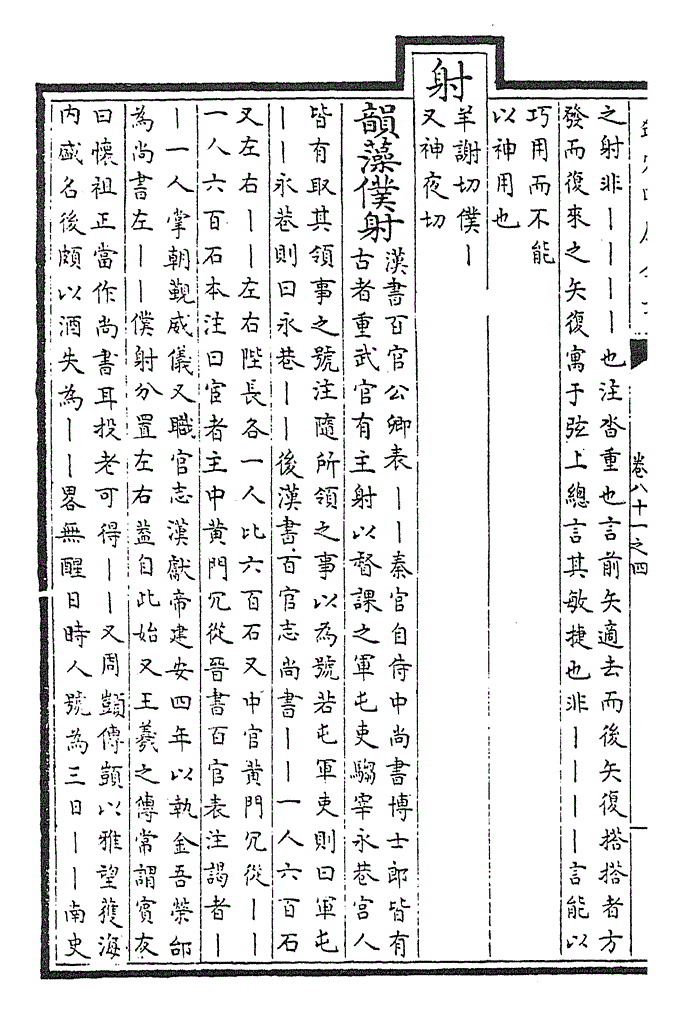 卷八十一之四
之射非丨丨丨丨也注沓重也言前矢適去而後矢復搭搭者方
發而復來之矢復寓于弦上總言其敏捷也非丨丨丨丨言能以
巧用而不能
以神用也
射
羊謝切僕丨
又神夜切
韻藻僕射
漢書百官公卿表丨丨秦官自侍中尚書博士郎皆有
古者重武官有主射以督課之軍屯吏騶宰永巷宫人
皆有取其領事之號注隨所領之事以為號若屯軍吏則曰軍屯
丨丨永巷則曰永巷丨丨後漢書百官志尚書丨丨一人六百石
又左右丨丨左右陛長各一人比六百石又中官黄門冗從丨丨
一人六百石本注曰宦者主中黄門冗從晉書百官表注謁者丨
丨一人掌朝覲威儀又職官志漢獻帝建安四年以執金吾榮郃
為尚書左丨丨僕射分置左右葢自此始又王羲之傳常謂賓友
曰懷祖正當作尚書耳投老可得丨丨又周顗傳顗以雅望獲海
内盛名後頗以酒失為丨丨畧無醒日時人號為三日丨丨南史